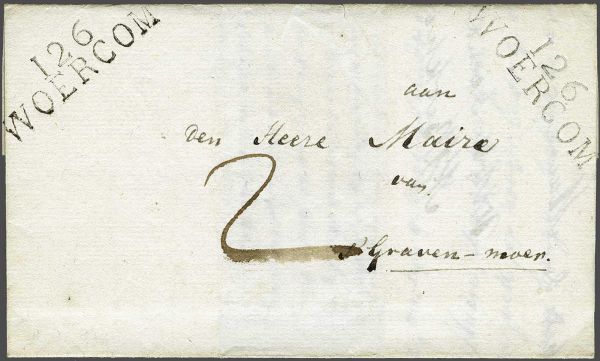 126
WOERCOM
126
WOERCOM
aan
den Heere Maire
van
2
s' Graven-moer.